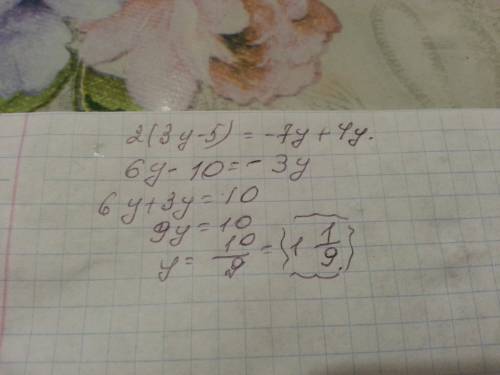 2(3y-5) = -7y+4y.
6y-10=-3y
6y+3y=10
9y=10
y=10/9={1 1/9}